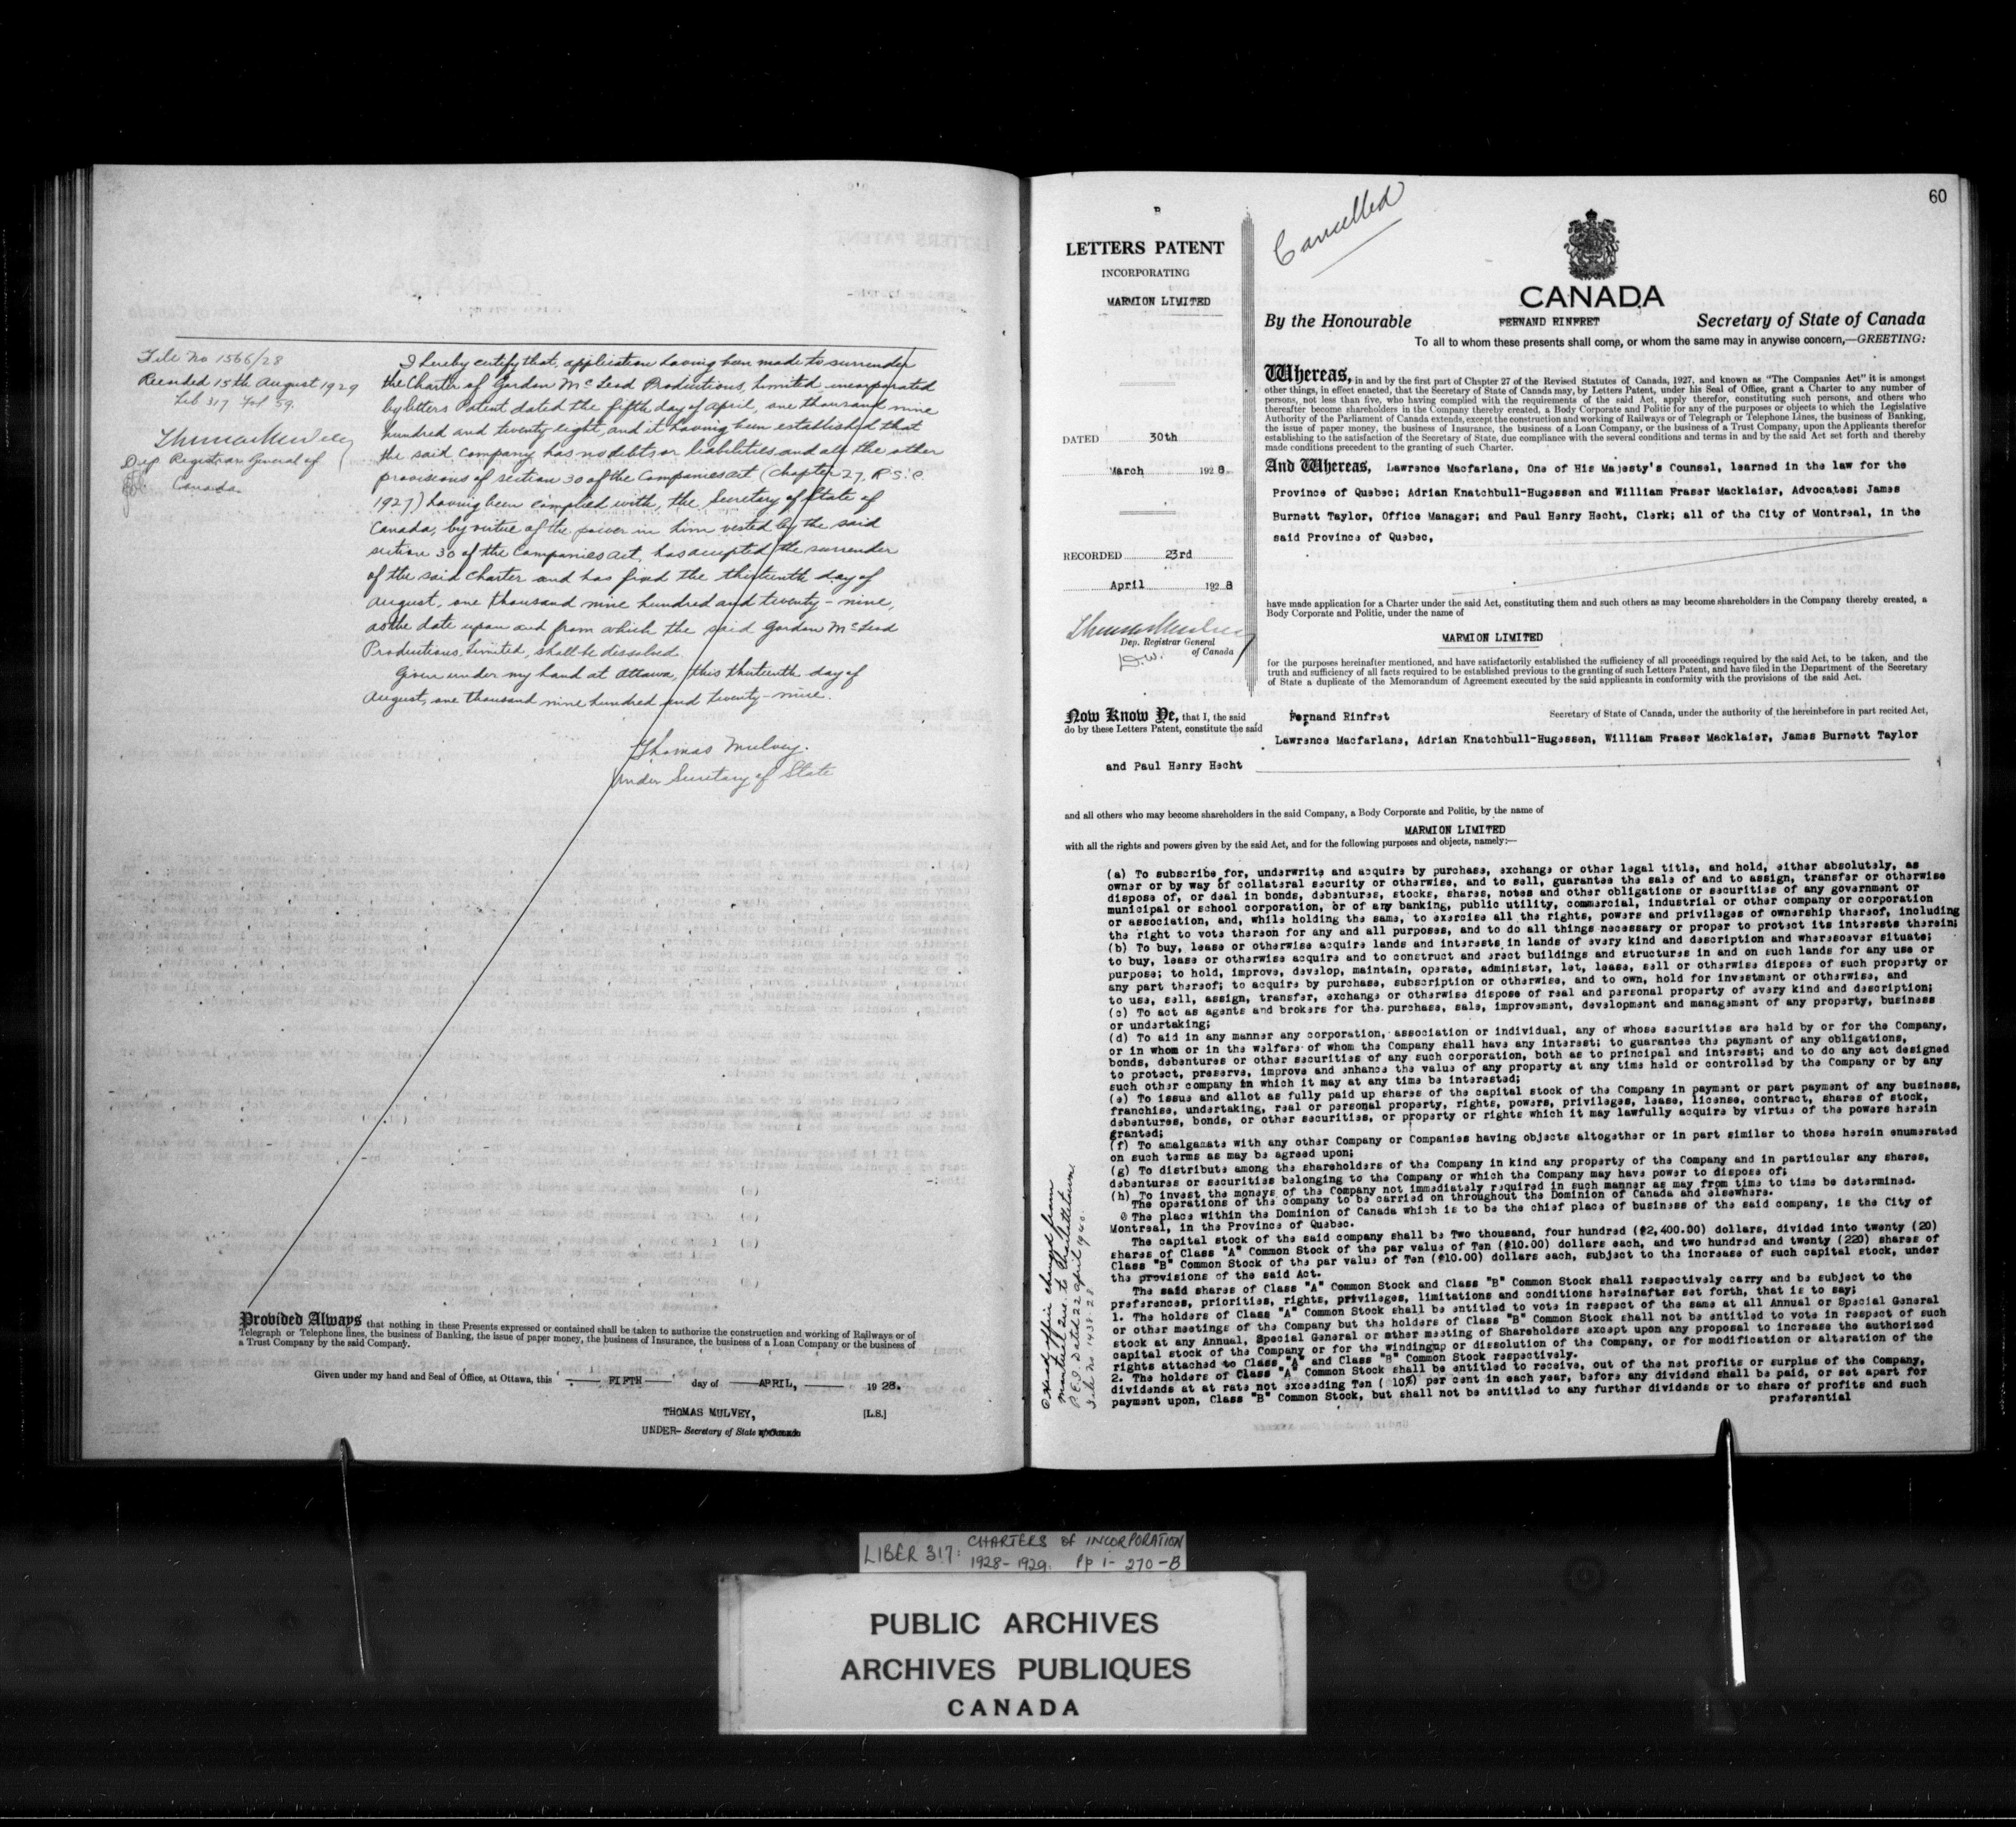 File No 1566/28
Recorded 15th August 1929
Lib 317 Fol 59.
Thomas Mulvey
Dep Registrar General of
Canada.
I hereby certify that, application having been made to surrender
the Charter of Gordon McLeod Productions, Limited, incorporated
by letters Patent dated the fifth day of April, one thousand nine
hundred and twenty-eight, and it having been established that
the said company has no debts or liabilities and all the other
provisions of section 30 of the Companies Act (Chapter 27, R.S.C.
1927) having been complied with, the Secretary of State of
Canada, by virtue of the power in him vested by the said
section 30 of the Companies Act, has accepted the surrender
of the said charter and has fixed the thirteenth day of
August, one thousand nine hundred and twenty-nine,
as the date upon and from which the said Gordon McLeod
Productions, Limited, shall be dissolved.
Given under my hand at Ottawa, this thirteenth day of
August, one thousand nine hundred and twenty-nine.
Thomas Mulvey.
Under Secretary of State
Provided Always that nothing in these Presents expressed or contained shall be taken to authorize the construction and working of Railways or of
Telegraph or Telephone lines, the business of Banking, the issue of paper money, the business of Insurance, the business of a Loan Company or the business of
a Trust Company by the said Company.
Given under my hand and Seal of Office, at Ottawa, this FIFTH day of APRIL, 1928.
THOMAS MULVEY, [L.S.]
UNDER- Secretary of State of Canada
60
B
Cancelled
LETTERS PATENT
INCORPORATING
MARMION LIMITED
DATED 30th
March 1928.
RECORDED 23rd
April 1928
Thomas Mulvey
Dep. Registrar General
of Canada
CANADA
By the Honourable FERNAND RINFRET Secretary of State of Canada
To all to whom these presents shall come, or whom the same may in anywise concern,—GREETING:
Whereas, in and by the first part of Chapter 27 of the Revised Statutes of Canada, 1927, and known as "The Companies Act" it is amongst
other things, in effect enacted, that the Secretary of State of Canada may, by Letters Patent, under his Seal of Office, grant a Charter to any number of
persons, not less than five, who having complied with the requirements of the said Act, apply therefor, constituting such persons, and others who
thereafter become shareholders in the Company thereby created, a Body Corporate and Politic for any of the purposes or objects to which the Legislative
Authority of the Parliament of Canada extends, except the construction and working of Railways or of Telegraph or Telephone Lines, the business of Banking,
the issue of paper money, the business of Insurance, the business of a Loan Company, or the business of a Trust Company, upon the Applicants therefor
establishing to the satisfaction of the Secretary of State, due compliance with the several conditions and terms in and by the said Act set forth and thereby
made conditions precedent to the granting of such Charter.
And Whereas, Lawrence Macfarlane, One of His Majesty's Counsel, learned in the law for the
Province of Quebec; Adrian Knatchbull-Hugessen and William Fraser Macklaier, Advocates; James
Burnett Taylor, Office Manager; and Paul Henry Hecht, Clerk; all of the City of Montreal, in the
said Province of Quebec,
have made application for a Charter under the said Act, constituting them and such others as may become shareholders in the Company thereby created, a
Body Corporate and Politic, under the name of
MARMION LIMITED
for the purposes hereinafter mentioned, and have satisfactorily established the sufficiency of all proceedings required by the said Act, to be taken, and the
truth and sufficiency of all facts required to be established previous to the granting of such Letters Patent, and have filed in the Department of the Secretary
of State a duplicate of the Memorandum of Agreement executed by the said applicants in conformity with the provisions of the said Act.
Now Know Ye, that I, the said Fernand Rinfret Secretary of State of Canada, under the authority of the hereinbefore in part recited Act,
do by these Letters Patent, constitute the said
Lawrence Macfarlane, Adrian Knatchbull-Hugessen, William Fraser Macklaier, James Burnett Taylor
and Paul Henry Hecht
and all others who may become shareholders in the said Company, a Body Corporate and Politic, by the name of
MARMION LIMITED
with all the rights and powers given by the said Act, and for the following purposes and objects, namely:—
(a) To subscribe for, underwrite and acquire by purchase, exchange or other legal title, and hold, either absolutely, as
owner or by way of collateral security or otherwise, and to sell, guarantee the sale of and to assign, transfer or otherwise
dispose of, or deal in bonds, debentures, stocks, shares, notes and other obligations or securities of any government or
municipal or school corporation, or of any banking, public utility, commercial, industrial or other company or corporation
or association, and, while holding the same, to exercise all the rights, powers and privileges of ownership thereof, including
the right to vote thereon for any and all purposes, and to do all things necessary or proper to protect its interests therein;
(b) To buy, lease or otherwise acquire lands and interests in lands of every kind and description and wheresoever situate;
to buy, lease or otherwise acquire and to construct and erect buildings and structures in and on such lands for any use or
purpose; to hold, improve, develop, maintain, operate, administer, let, lease, sell or otherwise dispose of such property or
any part thereof; to acquire by purchase, subscription or otherwise, and to own, hold for investment or otherwise, and
to use, sell, assign, transfer, exchange or otherwise dispose of real and personal property of every kind and description;
(c) To act as agents and brokers for the purchase, sale, improvement, development and management of any property, business
or undertaking;
(d) To aid in any manner any corporation, association or individual, any of whose securities are held by or for the Company,
or in whom or in the welfare of whom the Company shall have any interest; to guarantee the payment of any obligations,
bonds, debentures or other securities of any such corporation, both as to principal and interest; and to do any act designed
to protect, preserve, improve and enhance the value of any property at any time held or controlled by the Company or by any
such other company in which it may at any time be interested;
(e) To issue and allot as fully paid up shares of the capital stock of the Company in payment or part payment of any business,
franchise, undertaking, real or personal property, rights, powers, privileges, lease, license, contract, shares of stock,
debentures, bonds, or other securities, or property or rights which it may lawfully acquire by virtue of the powers herein
granted;
(f) To amalgamate with any other Company or Companies having objects altogether or in part similar to those herein enumerated
on such terms as may be agreed upon;
(g) To distribute among the shareholders of the Company in kind any property of the Company and in particular any shares,
debentures or securities belonging to the Company or which the Company may have power to dispose of;
(h) To invest the moneys of the Company not immediately required in such manner as may from time to time be determined.
The operations of the company to be carried on throughout the Dominion of Canada and elsewhere.
The place within the Dominion of Canada which is to be the chief place of business of the said company, is the City of
Montreal, in the Province of Quebec.
The capital stock of the said company shall be Two thousand, four hundred ($2,400.00) dollars, divided into twenty (20)
shares of Class "A" Common Stock of the par value of Ten ($10.00) dollars each, and two hundred and twenty (220) shares of
Class "B" Common Stock of the par value of Ten ($10.00) dollars each, subject to the increase of such capital stock, under
the provisions of the said Act.
The said shares of Class "A" Common Stock and Class "B" Common Stock shall respectively carry and be subject to the
preferences, priorities, rights, privileges, limitations and conditions hereinafter set forth, that is to say;
1. The holders of Class "A" Common Stock shall be entitled to vote in respect of the same at all Annual or Special General
or other meetings of the Company but the holders of Class "B" Common Stock shall not be entitled to vote in respect of such
stock at any Annual, Special General or other meeting of Shareholders except upon any proposal to increase the authorized
capital stock of the Company or for the windingup or dissolution of the Company, or for modification or alteration of the
rights attached to Class "A" and Class "B" Common Stock respectively.
2. The holders of Class "A" Common Stock shall be entitled to receive, out of the net profits or surplus of the Company,
dividends at at rate not exceeding Ten ( 10%) per cent in each year, before any dividend shall be paid, or set apart for
payment upon, Class "B" Common Stock, but shall not be entitled to any further dividends or to share of profits and such
preferential
Head office changed from
Montreal Que. to Charlottetown
P.E.I. Dated 22 April 1940.
File No 1438-28
LIBER 317: CHARTERS OF INCORPORATION
1928-1929. Pp 1-270-B
PUBLIC ARCHIVES
ARCHIVES PUBLIQUES
CANADA